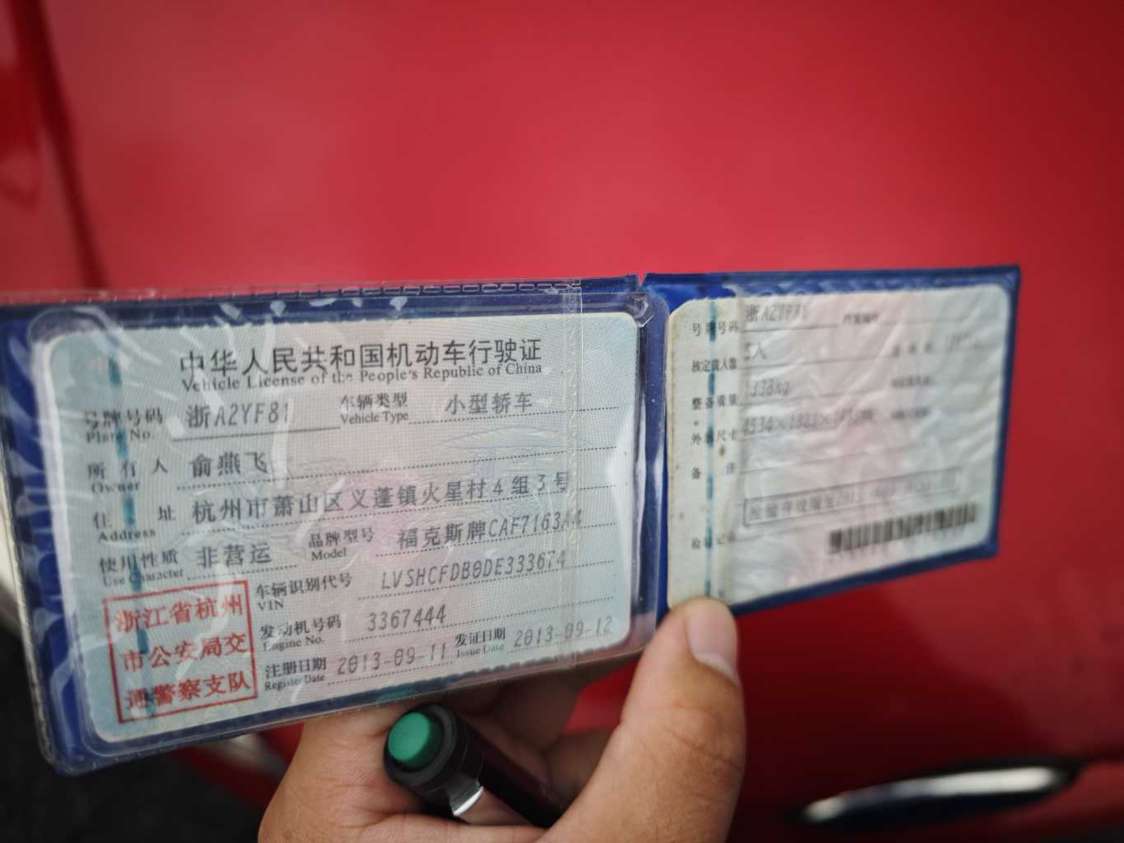 中华人民共和国机动车行驶证
Vehicle License of the People's Republic of China
号牌号码 浙A2YF81 车辆类型 小型轿车
Plate No. Vehicle Type
所有人 俞燕飞
Owner
住址 杭州市萧山区义蓬镇火星村4组3号
Address
使用性质 非营运 品牌型号 福克斯牌CAF7163A4
Use Character Model
车辆识别代号 LVSHCFDB0DE333674
VIN
发动机号码 3367444
Engine No.
注册日期 2013-09-11 发证日期 2013-09-12
Register Date Issue Date
浙江省杭州
市公安局交
通警察支队
号牌号码 浙A2YF81
核定载人数 5人
整备质量
外廓尺寸
备注
检验记录